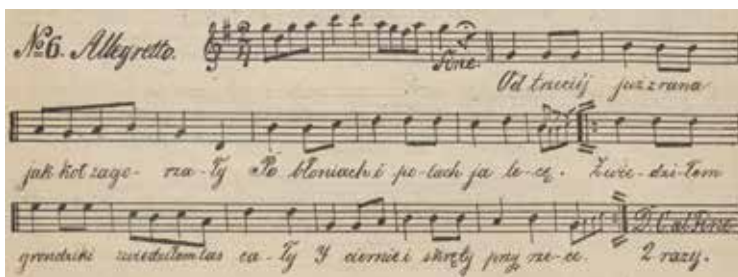 No 6. Allegretto.
Fine.
Od trzeciéj już z rana
jak kot zago- rza- ły Po błoniach i po- lach ja le- cę. Zwie- dzi- łem
grondziki zwiedziłem las ca- ły Y ciernie i skręty przy rze- ce.
D.C. al Fine
2 razy.